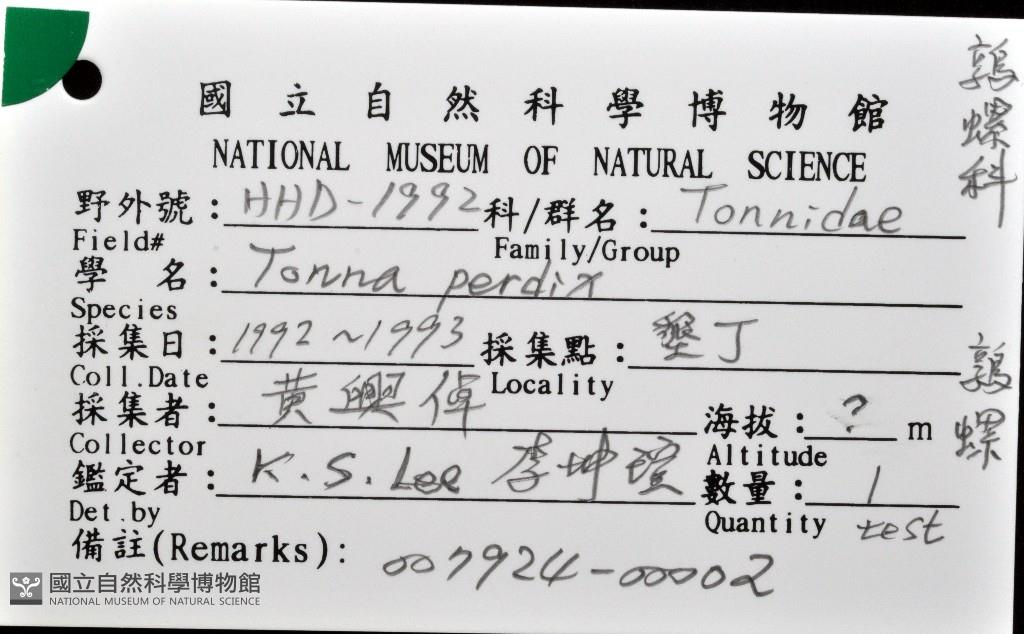 國立自然科學博物館
NATIONAL MUSEUM OF NATURAL SCIENCE
鶉螺科
野外號：HHD-1992 科/群名：Tonnidae
Field# Family/Group
學名：Tonna perdix
Species
採集日：1992~1993 採集點：墾丁
Coll.Date Locality
鶉螺
採集者：黃興倬 海拔：? m
Collector Altitude
鑑定者：K.S.Lee 李坤瑄 數量：1
Det.by Quantity test
備註(Remarks)：007924-00002
國立自然科學博物館
NATIONAL MUSEUM OF NATURAL SCIENCE